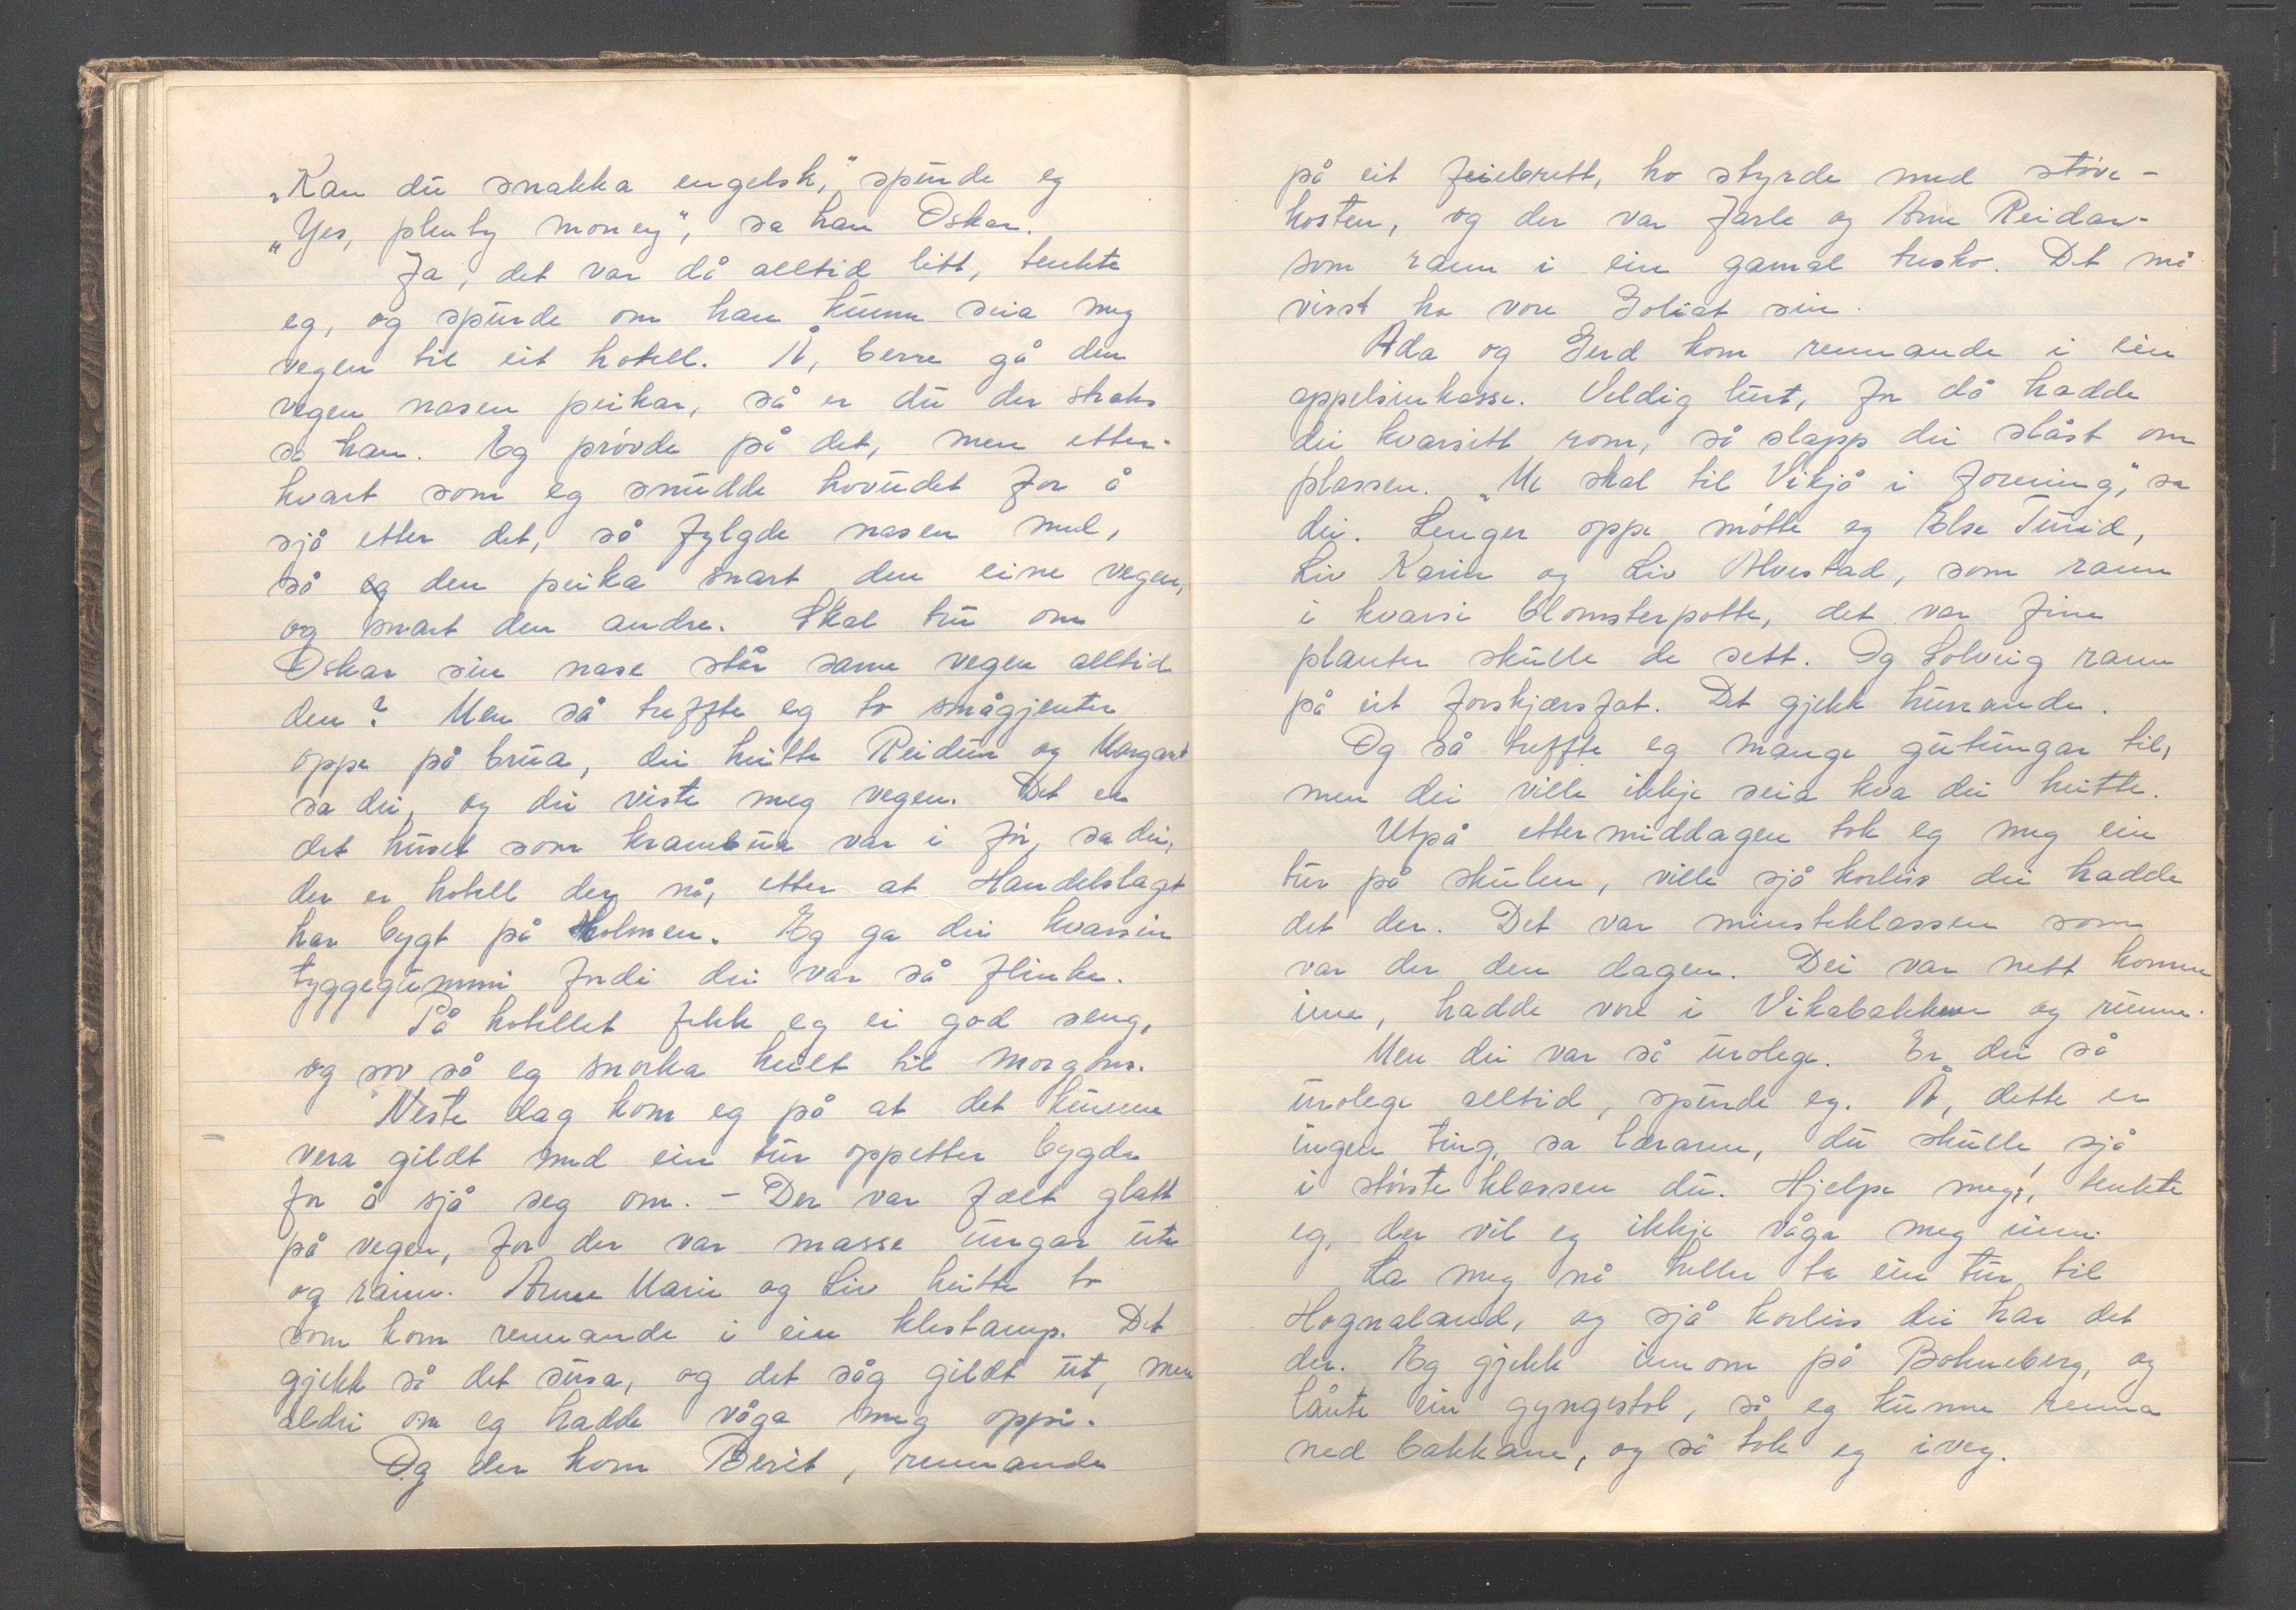 „Kan du snakka engelsk,“ spurde eg
„Yes, plenty money“, sa han Oskar.
Ja, det var då alltid litt, tenkte
eg, og spurde om han kunne seia meg
vegen til eit hotell. Å, berre gå den
vegen nasen peikar, så er du der straks
sa han. Eg prøvde på det, men etter-
kvart som eg snudde hovudet for å
sjå etter det, så fylgde nasen med,
så den peika snart den eine vegen,
og snart den andre. Skal tru om
Oskar sin nase står same vegen alltid
den? Men så treffte eg to smågjenter
oppe på brua, dei heitte Reidun og Margart
sa dei, og dei viste meg vegen. Det er
det huset som krambua var i før, sa dei,
der er hotell der nå, etter at Handelslaget
har bygt på Holmen. Eg ga dei kvarsin
tyggegummi fordi dei var så flinke.
På hotellet fekk eg ei god seng,
og sov så eg snorka heilt til morgons.
Neste dag kom eg på at det kunne
vera gildt med ein tur oppetter bygda
for å sjå seg om. - Der var fælt glatt
på vegen, for der var masse ungar ute
og rann. Anne Marie og Liv heitte to
som kom rennande i ein klestamp. Det
gjekk så det susa, og det såg gildt ut, men
aldri om eg hadde våga meg oppi.
Og der kom Berit, rennande
på eit feiebrett, ho styrde med støve-
kosten, og der var Jarle og Arne Reidar-
som rann i ein gamal tresko. Det må
visst ha vore Goliat sin.
Ada og Gerd kom rennande i ein
appelsinkasse. Veldig lurt, for då hadde
dei kvarsitt rom, så slapp dei slåst om
plassen. „Me skal til Vikjå i forening,“ sa
dei. Lenger oppe møtte eg Else Turid,
Liv Karin og Liv Alvestad, som rann
i kvarsi blomsterpotte, det var fine
planter skulle de sett. Og Solveig rann
på eit forskjærsfat. Det gjekk hurrande.
Og så treffte eg mange gutungar til,
men dei ville ikkje seia kva dei heitte.
Utpå ettermiddagen tok eg meg ein
tur på skulen, ville sjå korleis dei hadde
det der. Det var minsteklassen som
var der den dagen. Dei var nett komne
inn, hadde vore i Vikabakken og runne.
Men dei var så urolege. Er dei så
urolege alltid, spurde eg. Å, dette er
ingen ting, sa læraren, du skulle sjå
i største klassen du. Hjelpe meg!, tenkte
eg, der vil eg ikkje våga meg inn.
La meg nå heller ta ein tur til
Hognaland, og sjå korleis dei har det
der. Eg gjekk innom på Bohneberg, og
lånte ein gyngestol, så eg kunne renna
ned bakkane, og så tok eg iveg.